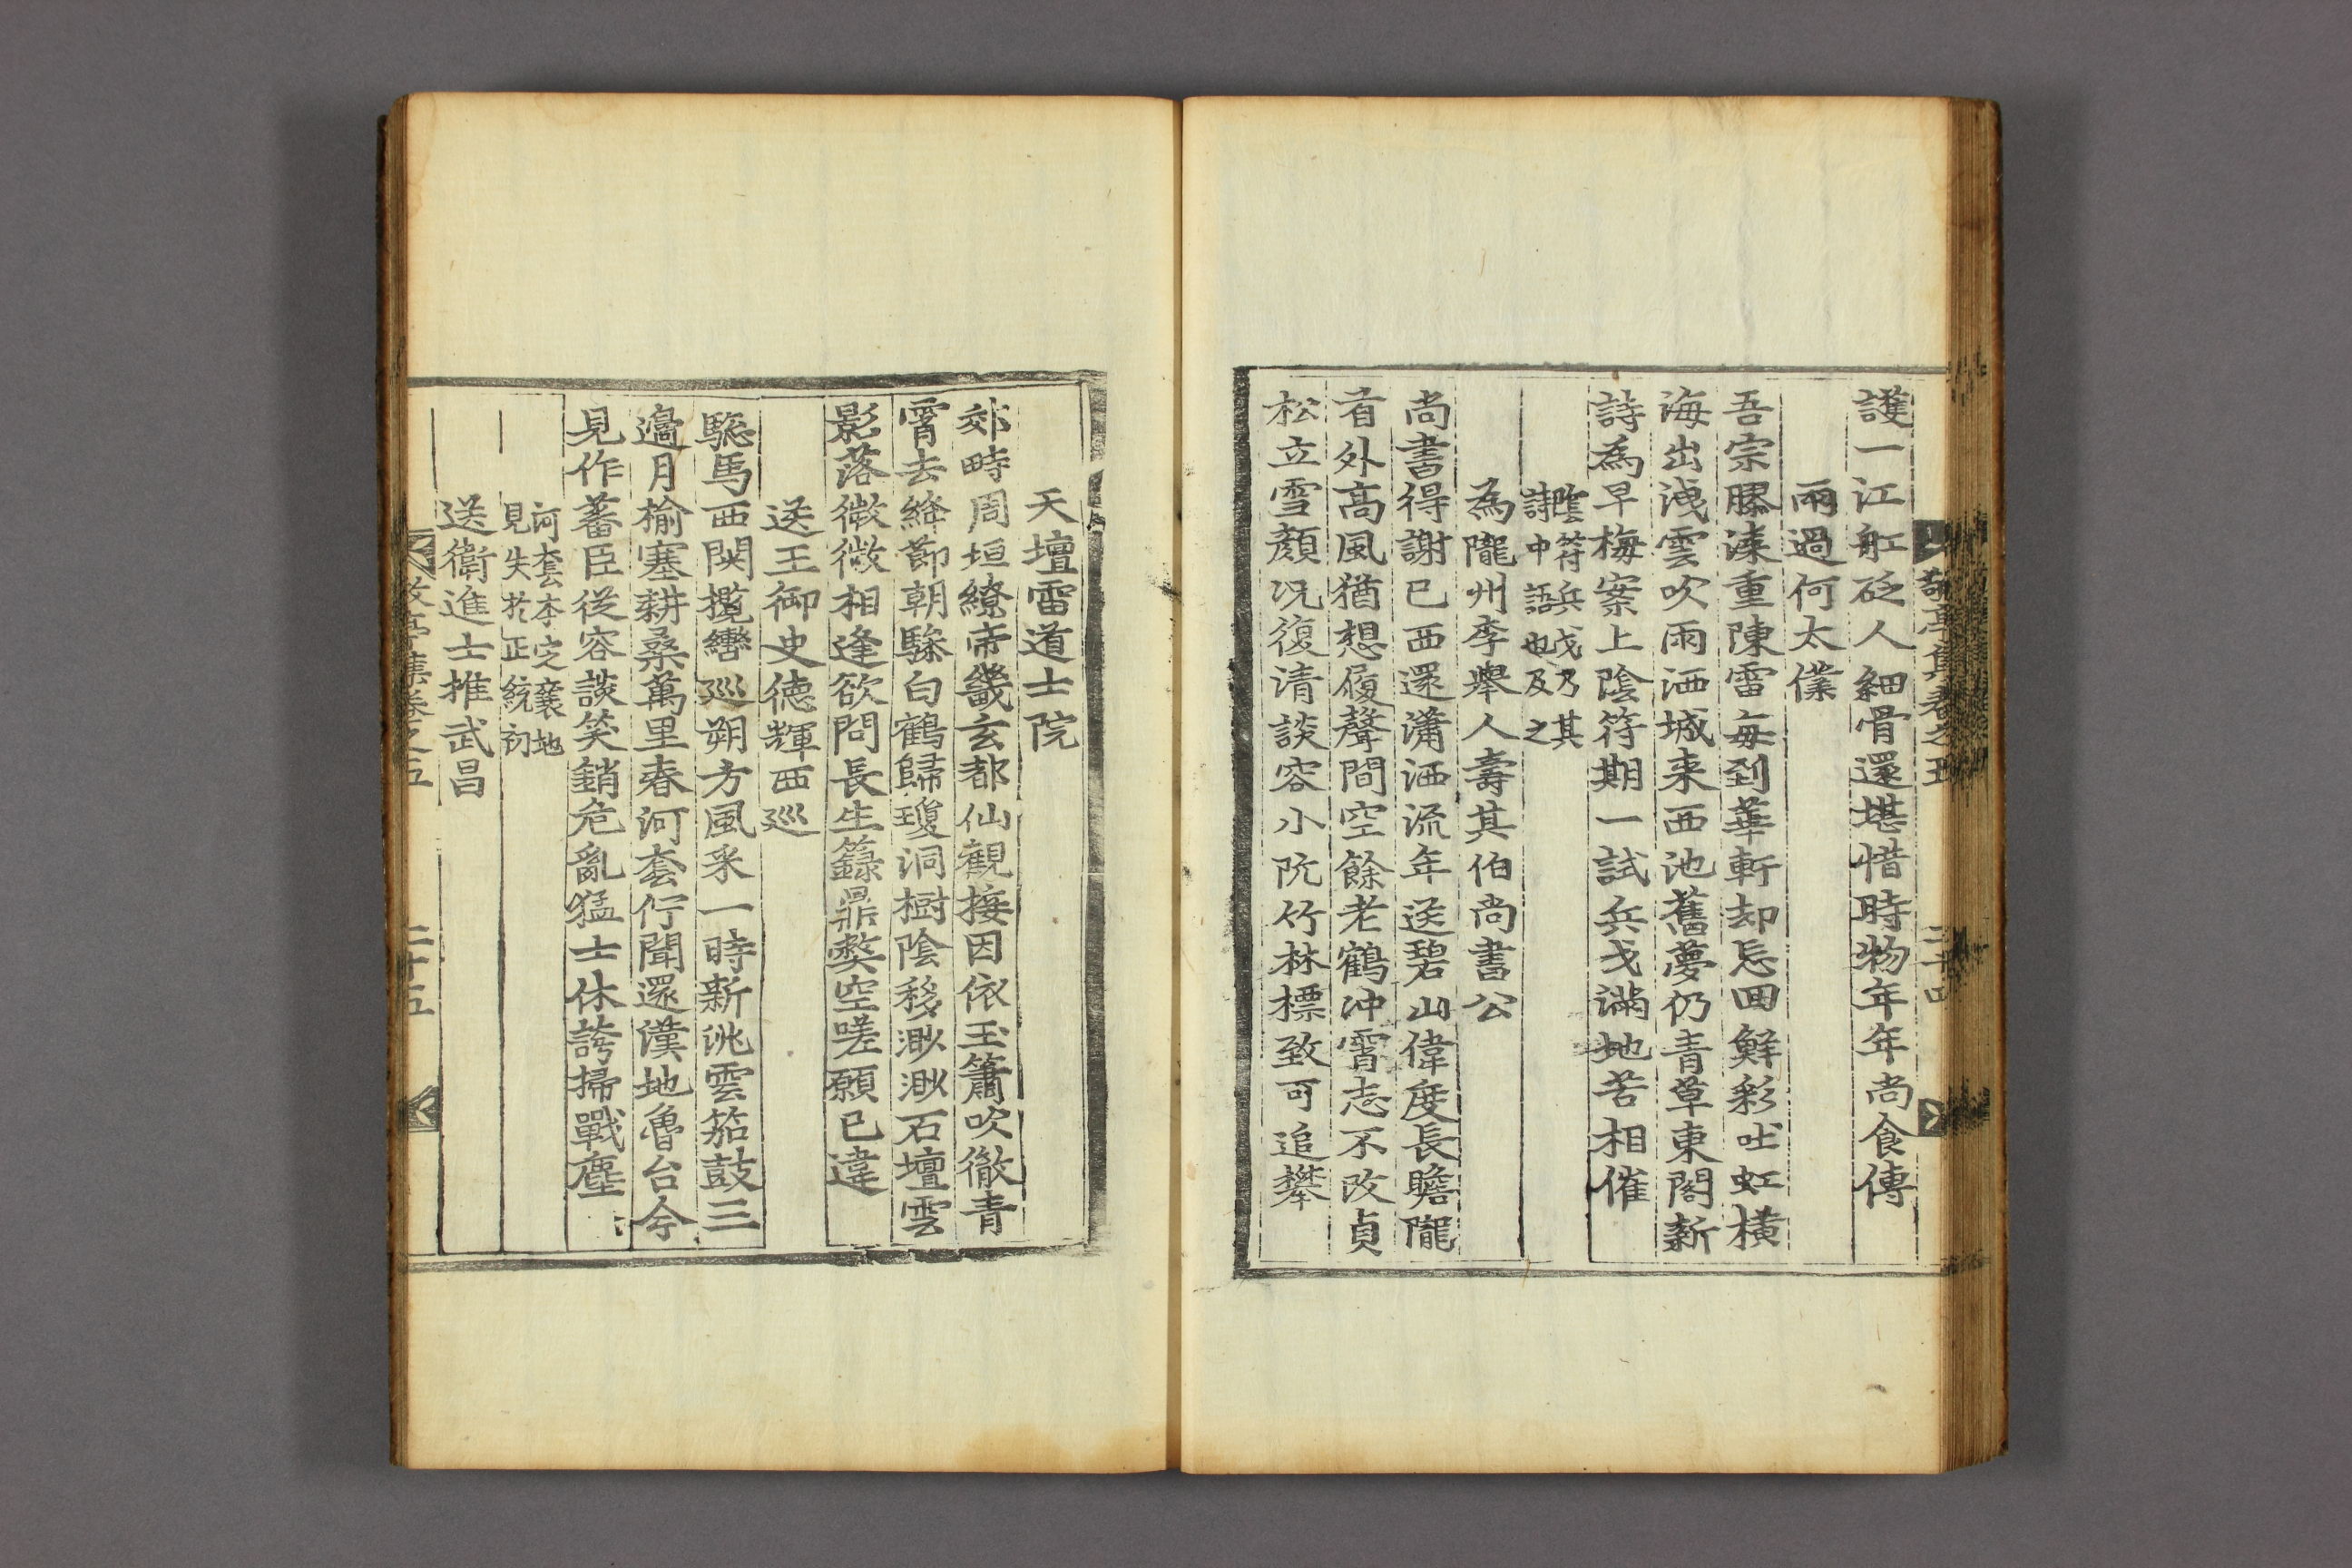 敬亭集卷之五 二十四
護一江舡砭人細骨還堪惜時物年年尚食傳
雨過何太僕
吾宗膠漆重陳雷每到華軒却忘回鮮彩吐虹橫
海出淺雲吹雨洒城来西池舊夢仍青草東閣新
詩為早梅案上陰符期一試兵戈滿地苦相催
陰符兵戈乃其
詩中語也及之
為隴州李舉人壽其伯尚書公
尚書得謝已西還瀟洒流年送碧山偉度長瞻隴
首外高風猶想履聲間空餘老鶴冲霄志不改貞
松立雪顏况復清談容小阮竹林標致可追攀
天壇雷道士院
郊畤周垣繚帝畿玄都仙觀接因依玉簫吹徹青
霄去絳節朝驂白鶴歸瓊洞樹陰移渺渺石壇雲
影落微微相逢欲問長生籙鼎弊空嗟願已違
送王御史德輝西巡
驄馬西関攬轡巡朔方風采一時新洮雲笳鼓三
邊月榆塞耕桑萬里春河套佇聞還漢地魯台今
見作蕃臣従容談笑銷危亂猛士休誇掃戰塵
河套李定襄地
見失於正統初
送衛進士推武昌
敬亭集卷之五 二十五